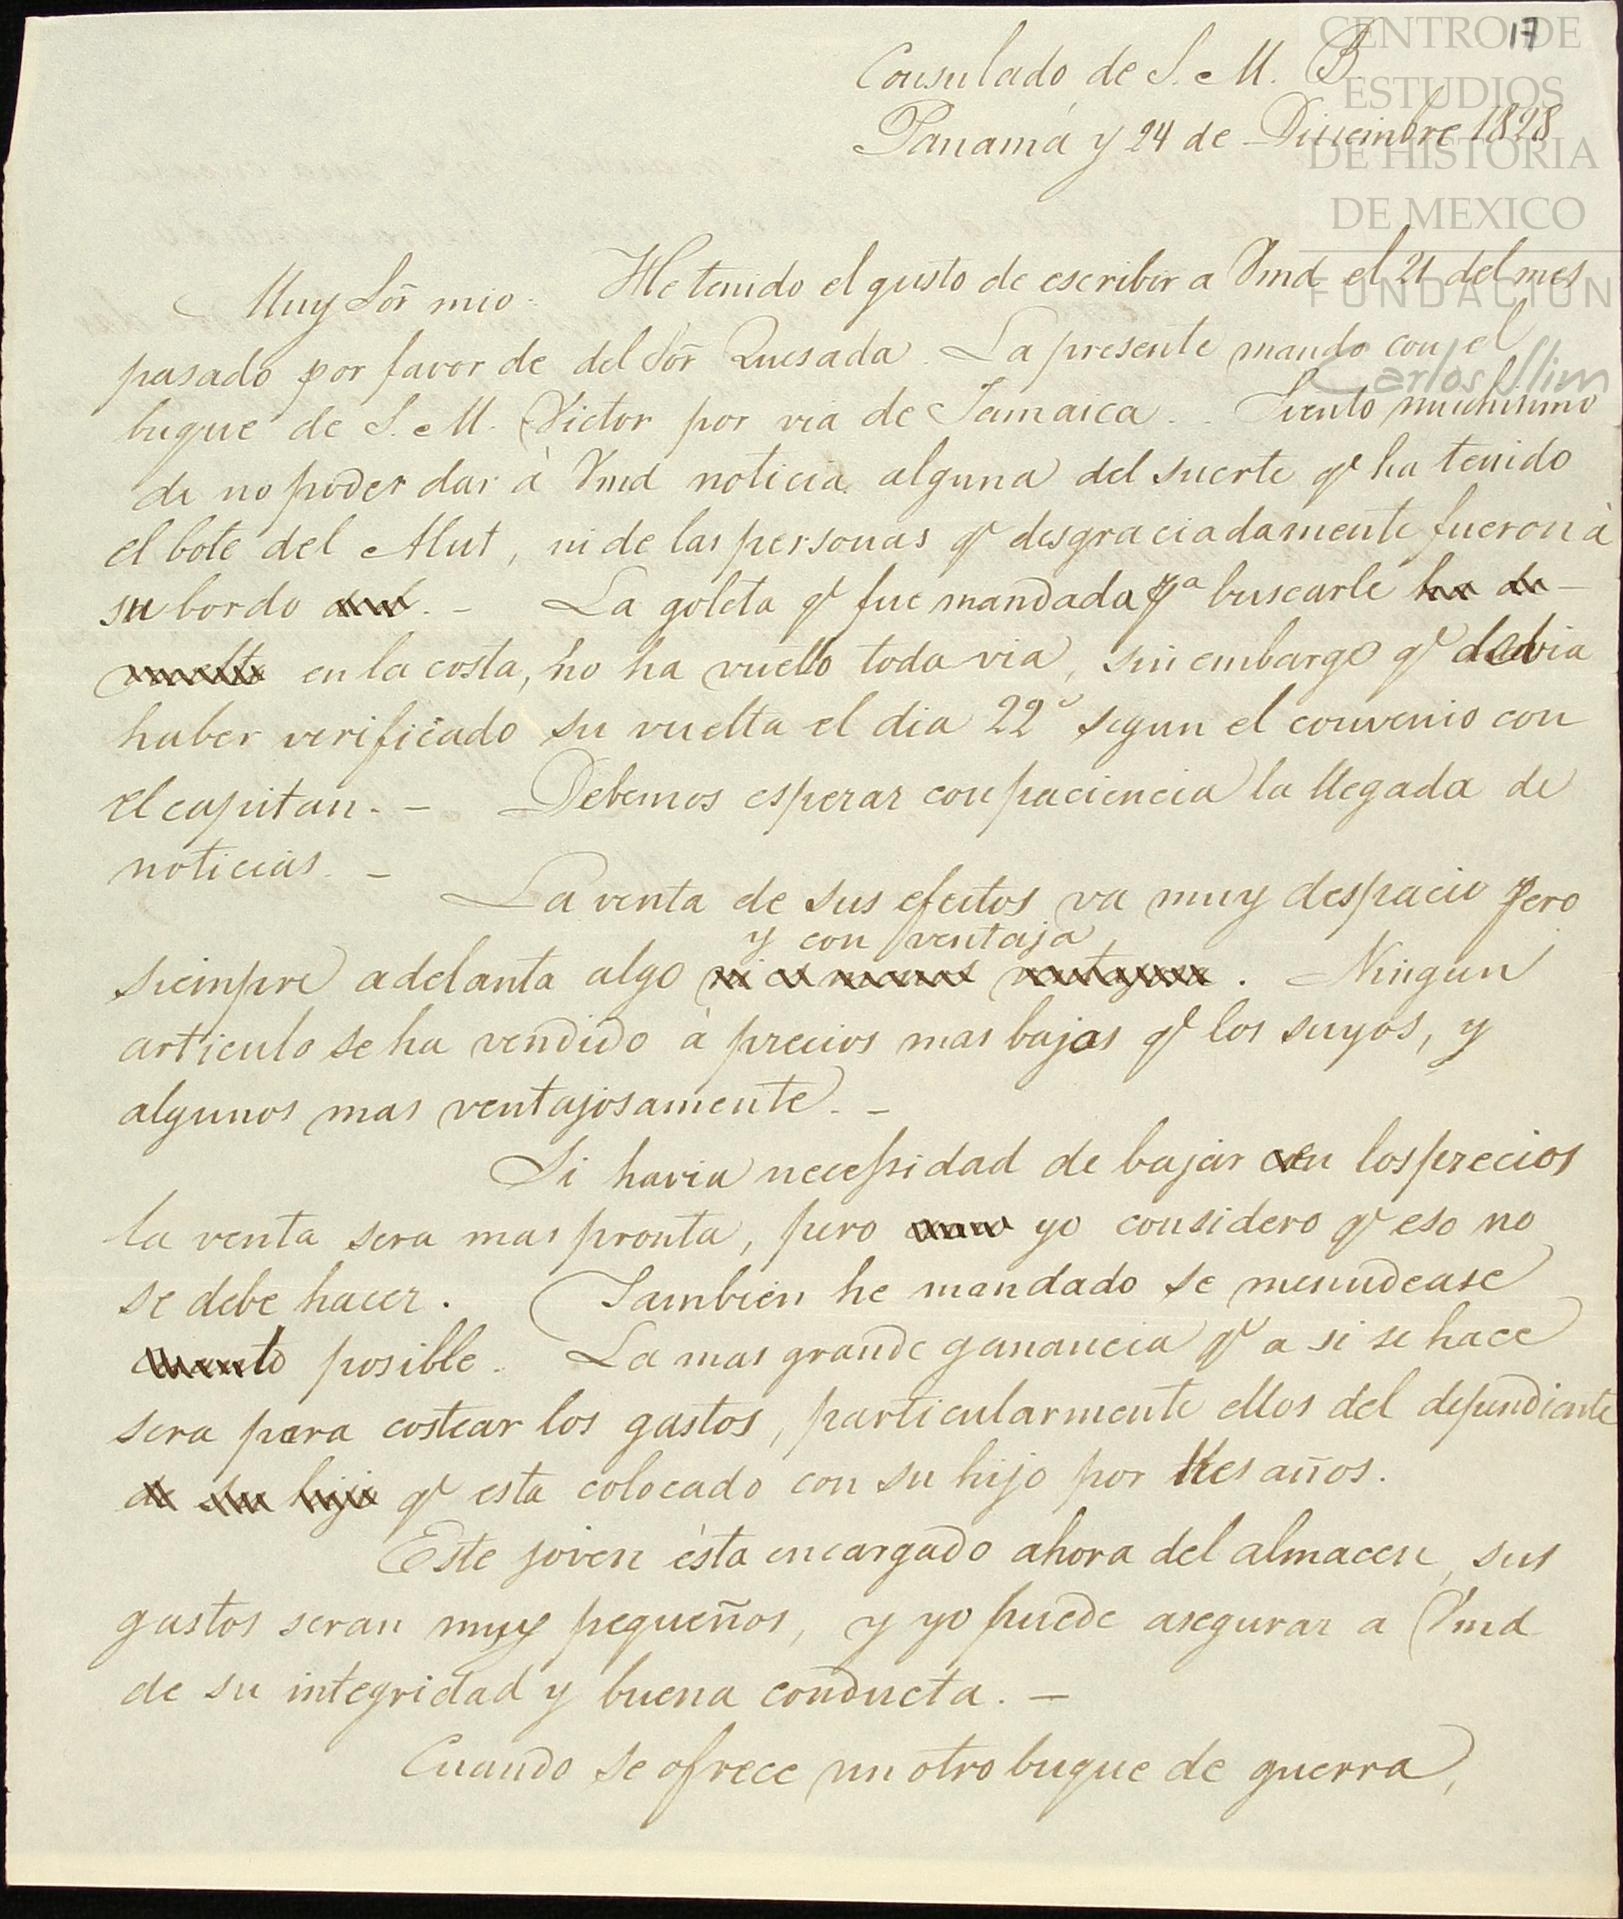 17
CENTRO DE
ESTUDIOS
DE HISTORIA
DE MEXICO
FUNDACION
Carlos Slim
Consulado de S. M. B.
Panamá y 24 de Diciembre 1828
Muy Sõr mio. He tenido el gusto de escribir a Vmd el 21 del mes
pasado por favor de del Sõr Quesada. La presente mando con el
buque de S. M. Victor por via de Jamaica. . Siento muchisimo
de no poder dar à Vmd noticia alguna del suerte qe ha tenido
el bote del Mut, ni de las personas qe desgraciadamente fueron à
su bordo . - La goleta qe fue mandada pa buscarle
en la costa, no ha vuelto toda via, sin embargo qe debia
haber verificado su vuelta el dia 22º segun el convenio con
el capitan. - Debemos esperar con paciencia la llegada de
noticias. -
La venta de sus efectos va muy despacio pero
y con ventaja,
siempre adelanta algo . Ningun
articulo se ha vendido à precios mas bajos qe los suyos, y
algunos mas ventajosamente. -
Si havia necessidad de bajar en los precios
la venta sera mas pronta, pero yo considero qe eso no
se debe hacer. Tambien he mandado se menudease
posible. La mas grande ganancia qe a si se hace
sera para costear los gastos, particularmente ellos del dependiente
de su hijo qe esta colocado con su hijo por tres años.
Este joven èsta encargado ahora del almacen, sus
gastos seran muy pequeños, y yo puede asegurar a Vmd
de su integridad y buena conducta. -
Cuando se ofrece un otro buque de guerra,